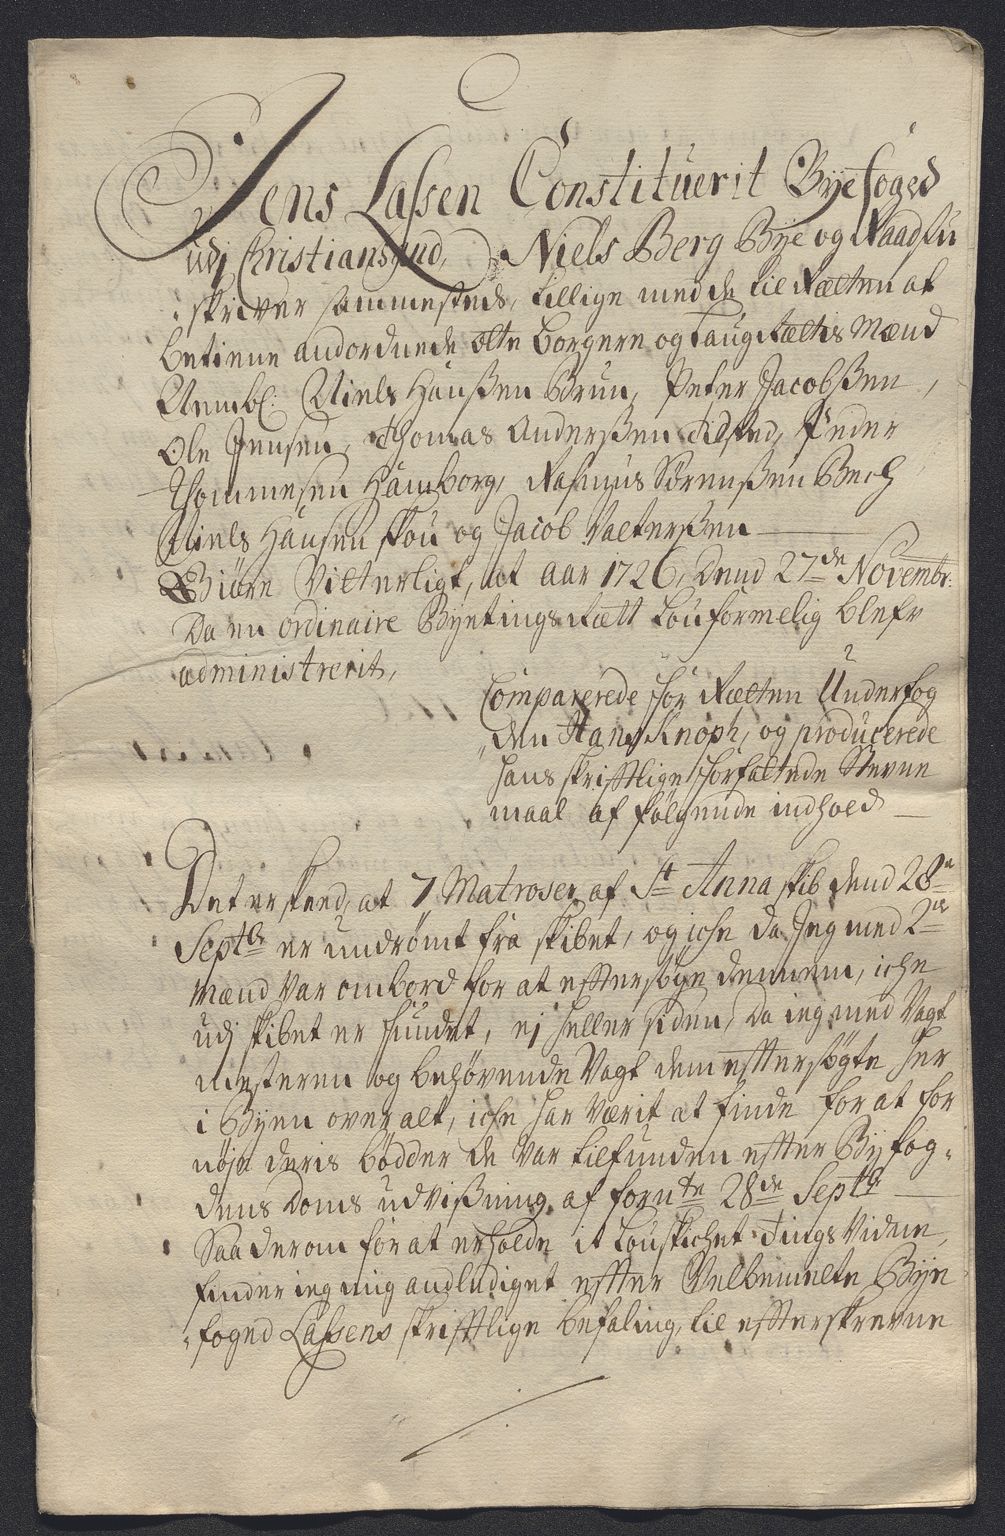 Jens Lassen Constituerit Byefoged
udj Christiansund, Niels Berg Bye og Raadstu
skriver sammesteds, tillige med de til Rætten at
betiene andordnede otte borgere og Laug Rættis Mænd
Nembl: Niels Hanßen Brun, Peter Jacobßen,
Ole Jensen, Thomas Anderßen Tilsted, Peder
Thommesen Hamborg, Rasmus Sørenßen Bech
Niels Hansen skou og Jacob Valterßen
Giøre Vitterligt, at aar 1726, Dend 27de Novembr:
Da en ordinaire Byetings Rætt louformelig blefv
administrerit,
Comparerede for Rætten Underfog
den Hans Knoph, og producerede
hans skrifftlige forfattede Stevne
maal af følgende indhold
Det er skeed, at 7 Matroser af St Anna skib dend 28de
Septbr er undrømt fra skibet, og iche da Jeg med 2de
Mænd var ombord for at efftersøge dennem, iche
udj skibet er fundet, ej heller siden, da ieg med Vagt
mesteren og behøvende Vagt dem efftersøgte her
i Byen over alt, iche har værit at finde for at for
nøje deris bødder de var tilfunden effter Byfog-
dens Doms udvißning af fornte 28de Septbr
Saa derom for at erholde it louskichet Tings Vidne,
finder ieg mig andlediget effter Velbemelte Bye
foged Lassens skrifftlige befaling, til effterskrevne